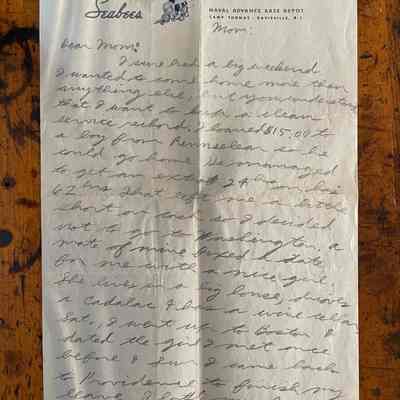 Seabees
NAVAL ADVANCE BASE DEPOT
CAMP THOMAS - DAVISVILLE, R. I.
Mom:
Dear Mom:
I sure had a big weekend
I wanted to come home more than
anything else, but you understand
that I want to keep a clean
service rechord. I loaned $15.00 to
a boy from Rennselear so he
could go home He mannaged
to get an extra 24 hours on his
62 hrs That left me a little
short on cash so I decided
not to go to Washington, a
mate of mine fixed a date
for me with a nice girl.
She lives in a big house, drives
a Cadalac & has a wine cellar
Sat, I went up to Boston &
dated the girl I met once
before & Sun I came back
to Providence to finish my
leave. I